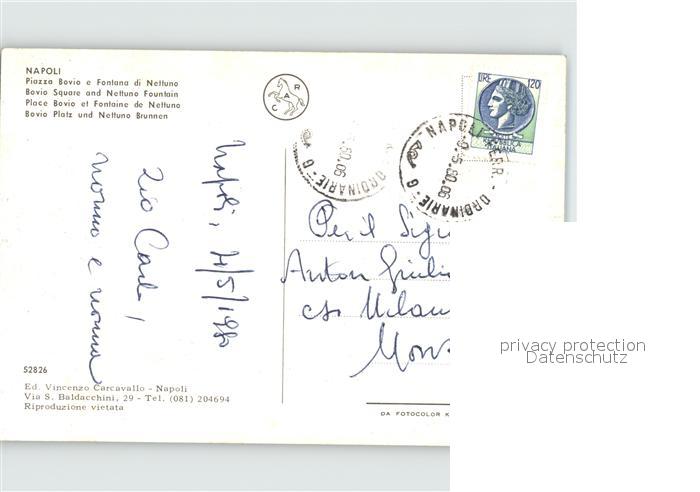 NAPOLI
Piazza Bovio e Fontana di Nettuno
Bovio Square and Nettuno Fountain
Place Bovio et Fontaine de Nettuno
Bovio Platz und Nettuno Brunnen
CAR
LIRE 120
REPUBBLICA
ITALIANA
NAPOLI FERR. - ORDINARIE - G
ORDINARIE - G
Napoli, 4/5/1980
Zio Carlo,
nonno e nonna
Per il
Anton Giuli
cso Milan
Mon
52826
Ed. Vincenzo Carcavallo - Napoli
Via S. Baldacchini, 29 - Tel. (081) 204694
Riproduzione vietata
DA FOTOCOLOR K
privacy protection
Datenschutz